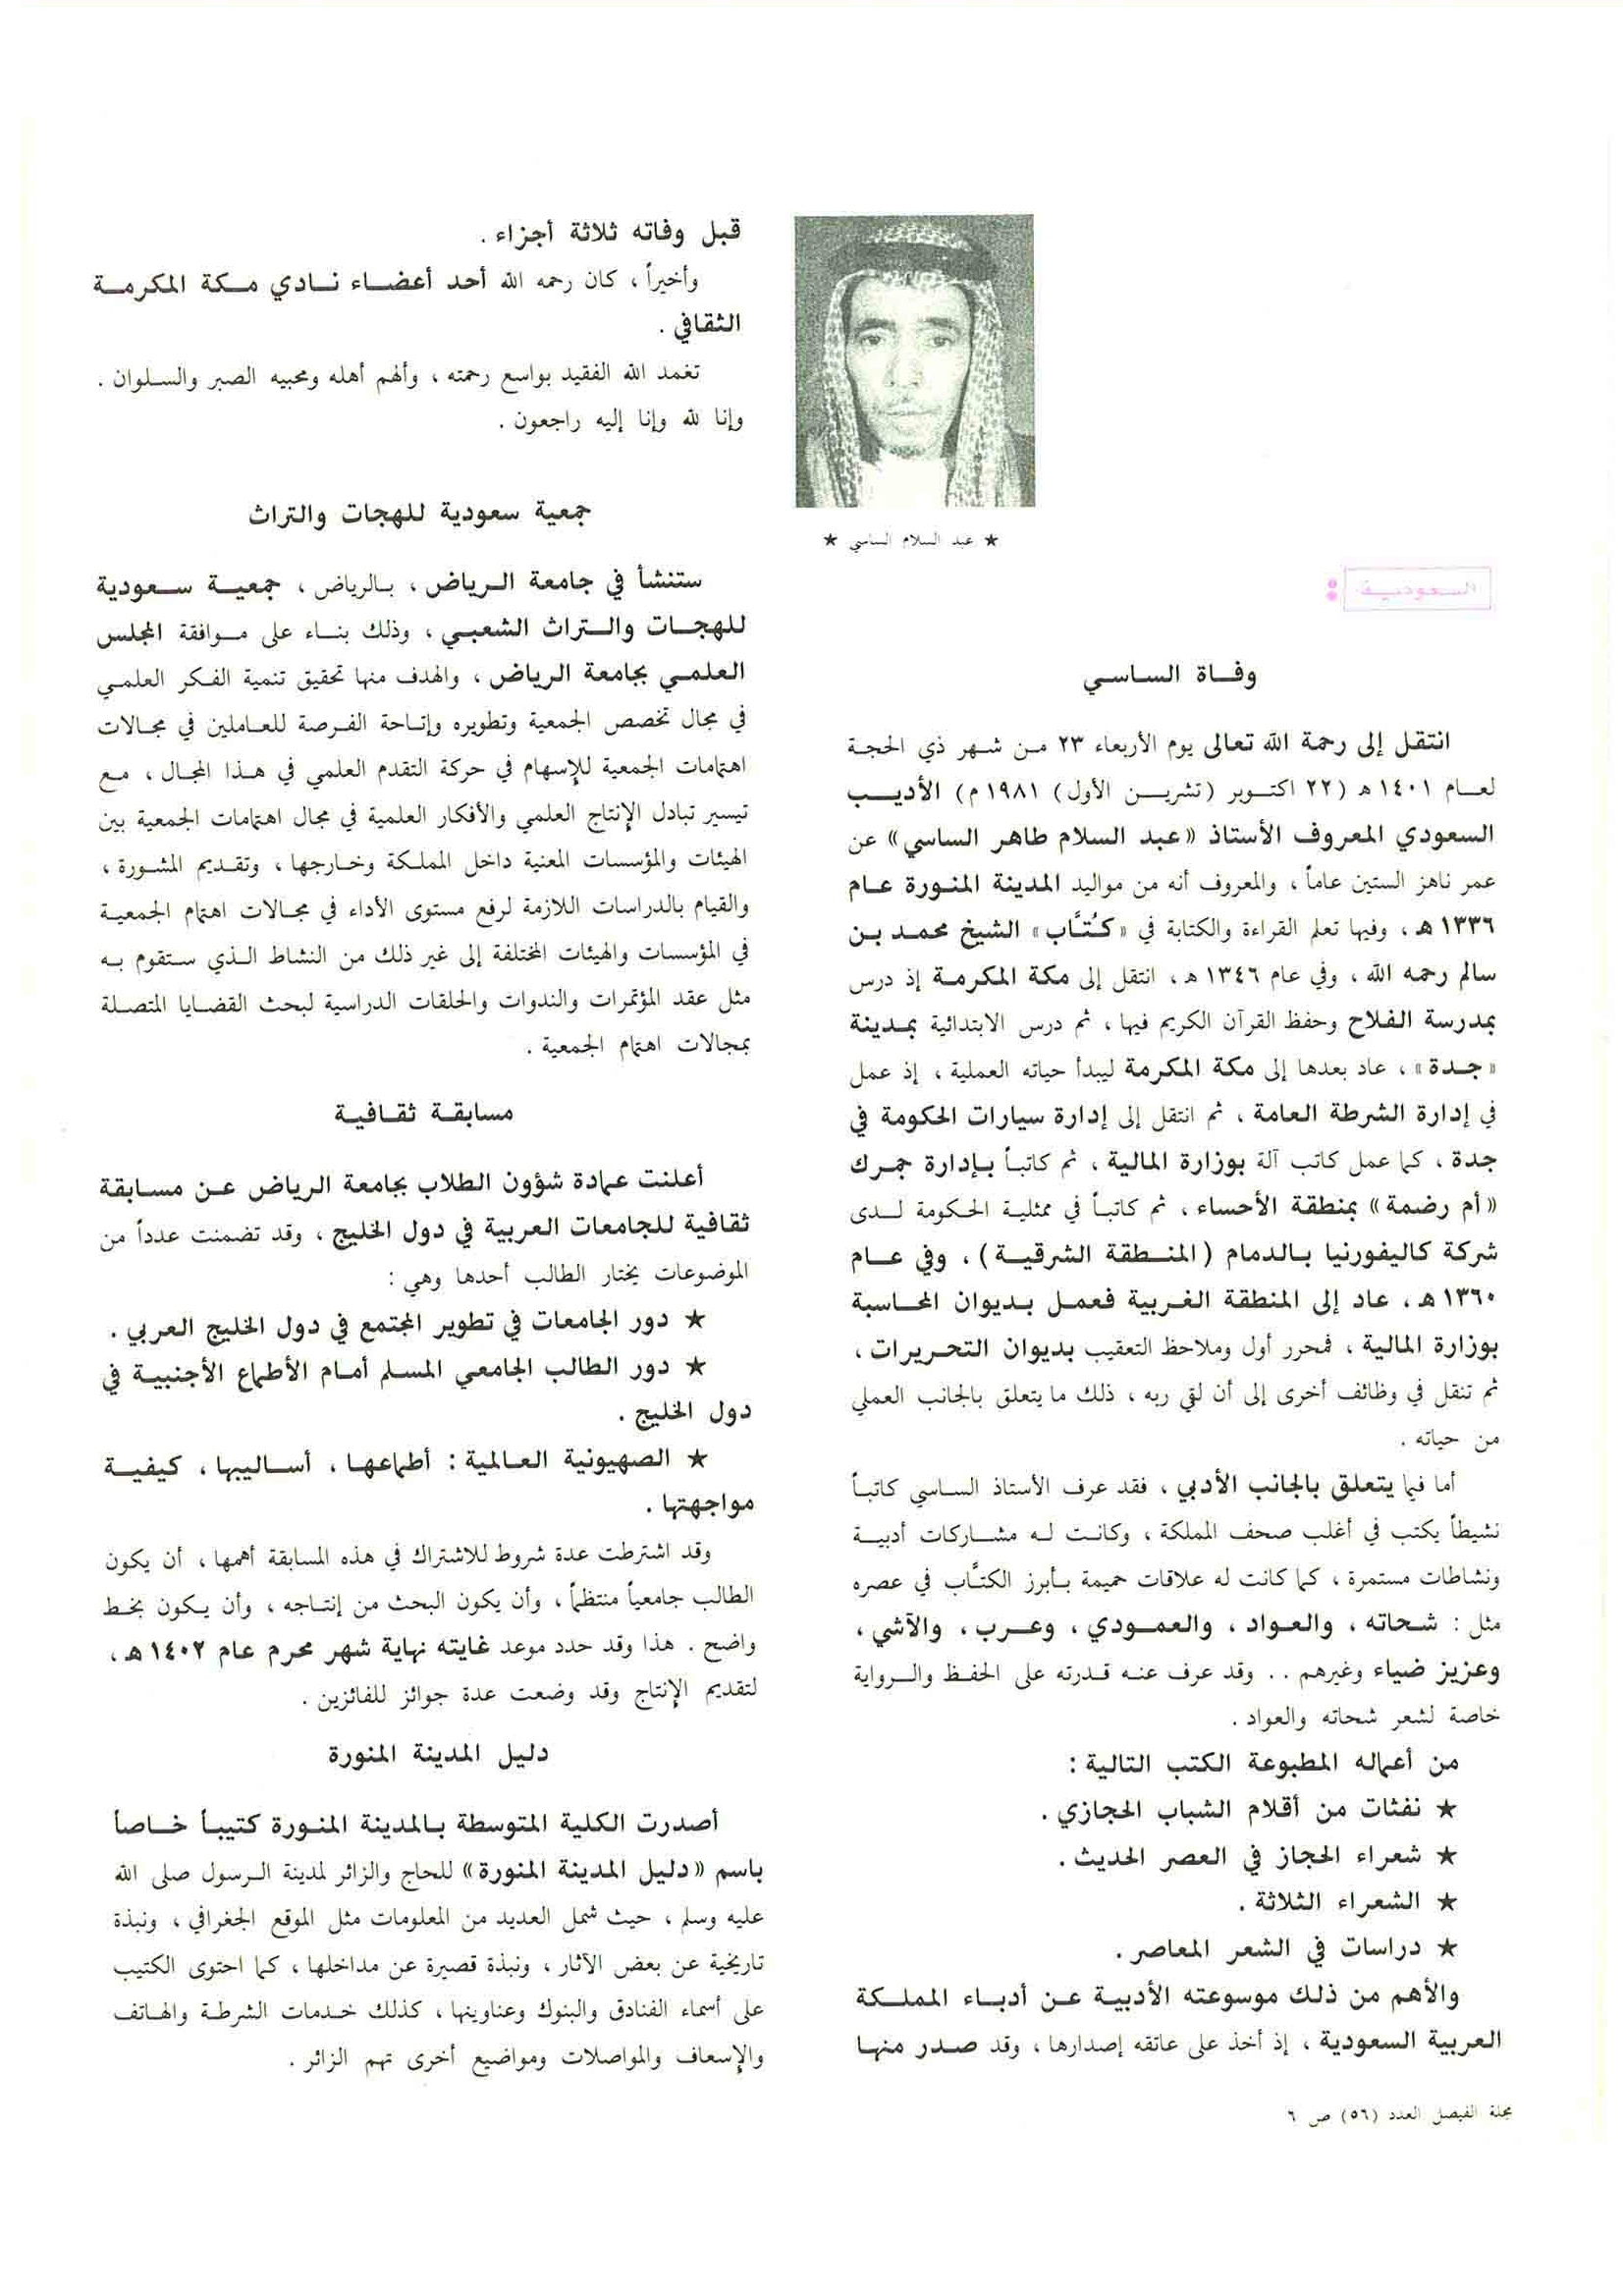 ★ عبد السلام الساسي ★
السعودية :
وفاة الساسي
انتقل إلى رحمة الله تعالى يوم الأربعاء ٢٣ من شهر ذي الحجة
لعام ١٤٠١ هـ (٢٢ اكتوبر (تشرين الأول) ١٩٨١ م) الأديب
السعودي المعروف الأستاذ «عبد السلام طاهر الساسي» عن
عمر ناهز الستين عاماً ، والمعروف أنه من مواليد المدينة المنورة عام
١٣٣٦ هـ ، وفيها تعلم القراءة والكتابة في «كُتَّاب» الشيخ محمد بن
سالم رحمه الله ، وفي عام ١٣٤٦ هـ ، انتقل إلى مكة المكرمة إذ درس
بمدرسة الفلاح وحفظ القرآن الكريم فيها ، ثم درس الابتدائية بمدينة
«جدة» ، عاد بعدها إلى مكة المكرمة ليبدأ حياته العملية ، إذ عمل
في إدارة الشرطة العامة ، ثم انتقل إلى إدارة سيارات الحكومة في
جدة ، كما عمل كاتب آلة بوزارة المالية ، ثم كاتباً بإدارة جمرك
«أم رضمة» بمنطقة الأحساء ، ثم كاتباً في ممثلية الحكومة لدى
شركة كاليفورنيا بالدمام (المنطقة الشرقية) ، وفي عام
١٣٦٠ هـ ، عاد إلى المنطقة الغربية فعمل بديوان المحاسبة
بوزارة المالية ، فمحرر أول وملاحظ التعقيب بديوان التحريرات ،
ثم تنقل في وظائف أخرى إلى أن لقي ربه ، ذلك ما يتعلق بالجانب العملي
من حياته .
أما فيما يتعلق بالجانب الأدبي ، فقد عرف الأستاذ الساسي كاتباً
نشيطاً يكتب في أغلب صحف المملكة ، وكانت له مشاركات أدبية
ونشاطات مستمرة ، كما كانت له علاقات حميمة بأبرز الكتَّاب في عصره
مثل : شحاته ، والعواد ، والعمودي ، وعرب ، والآشي ،
وعزيز ضياء وغيرهم .. وقد عرف عنه قدرته على الحفظ والرواية
خاصة لشعر شحاته والعواد .
من أعماله المطبوعة الكتب التالية :
★ نفثات من أقلام الشباب الحجازي .
★ شعراء الحجاز في العصر الحديث .
★ الشعراء الثلاثة .
★ دراسات في الشعر المعاصر .
والأهم من ذلك موسوعته الأدبية عن أدباء المملكة
العربية السعودية ، إذ أخذ على عاتقه إصدارها ، وقد صدر منها
قبل وفاته ثلاثة أجزاء .
وأخيراً ، كان رحمه الله أحد أعضاء نادي مكة المكرمة
الثقافي .
تغمد الله الفقيد بواسع رحمته ، وألهم أهله ومحبيه الصبر والسلوان .
وإنا لله وإنا إليه راجعون .
جمعية سعودية للهجات والتراث
ستنشأ في جامعة الرياض ، بالرياض ، جمعية سعودية
للهجات والتراث الشعبي ، وذلك بناء على موافقة المجلس
العلمي بجامعة الرياض ، والهدف منها تحقيق تنمية الفكر العلمي
في مجال تخصص الجمعية وتطويره وإتاحة الفرصة للعاملين في مجالات
اهتمامات الجمعية للإسهام في حركة التقدم العلمي في هذا المجال ، مع
تيسير تبادل الإنتاج العلمي والأفكار العلمية في مجال اهتمامات الجمعية بين
الهيئات والمؤسسات المعنية داخل المملكة وخارجها ، وتقديم المشورة ،
والقيام بالدراسات اللازمة لرفع مستوى الأداء في مجالات اهتمام الجمعية
في المؤسسات والهيئات المختلفة إلى غير ذلك من النشاط الذي ستقوم به
مثل عقد المؤتمرات والندوات والحلقات الدراسية لبحث القضايا المتصلة
بمجالات اهتمام الجمعية .
مسابقة ثقافية
أعلنت عمادة شؤون الطلاب بجامعة الرياض عن مسابقة
ثقافية للجامعات العربية في دول الخليج ، وقد تضمنت عدداً من
الموضوعات يختار الطالب أحدها وهي :
★ دور الجامعات في تطوير المجتمع في دول الخليج العربي .
★ دور الطالب الجامعي المسلم أمام الأطماع الأجنبية في
دول الخليج .
★ الصهيونية العالمية : أطماعها ، أساليبها ، كيفية
مواجهتها .
وقد اشترطت عدة شروط للاشتراك في هذه المسابقة أهمها ، أن يكون
الطالب جامعياً منتظماً ، وأن يكون البحث من إنتاجه ، وأن يكون بخط
واضح . هذا وقد حدد موعد غايته نهاية شهر محرم عام ١٤٠٢ هـ ،
لتقديم الإنتاج وقد وضعت عدة جوائز للفائزين .
دليل المدينة المنورة
أصدرت الكلية المتوسطة بالمدينة المنورة كتيباً خاصاً
باسم «دليل المدينة المنورة» للحاج والزائر لمدينة الرسول صلى الله
عليه وسلم ، حيث شمل العديد من المعلومات مثل الموقع الجغرافي ، ونبذة
تاريخية عن بعض الآثار ، ونبذة قصيرة عن مداخلها ، كما احتوى الكتيب
على أسماء الفنادق والبنوك وعناوينها ، كذلك خدمات الشرطة والهاتف
والإسعاف والمواصلات ومواضيع أخرى تهم الزائر .
مجلة الفيصل العدد (٥٦) ص ٦